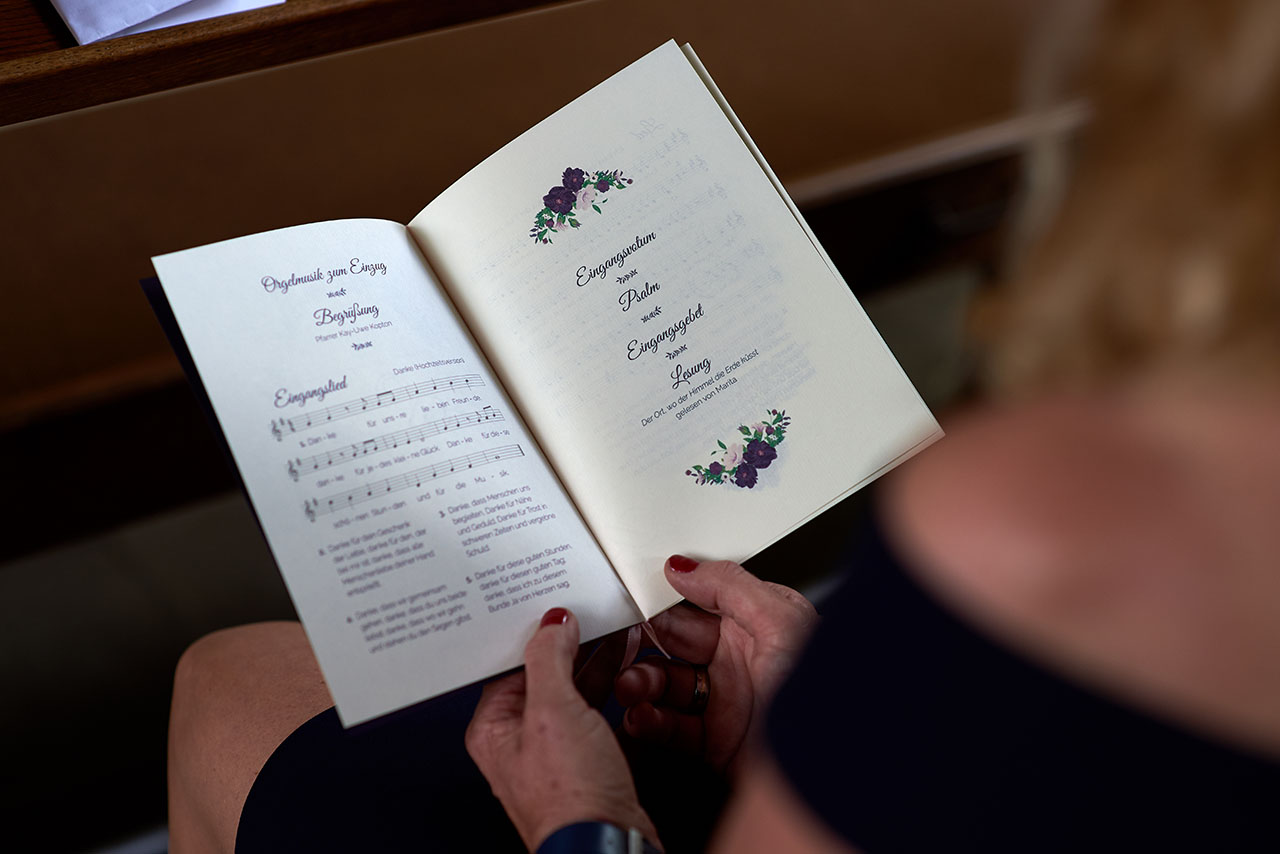 Orgelmusik zum Einzug
Begrüßung
Pfarrer Kay-Uwe Kopton
Eingangslied
Danke (Hochzeitsversion)
1. Dan - ke für uns - re lie - ben Freun - de,
dan - ke für je - des klei - ne Glück. Dan - ke für die - se
schö - nen Stun - den und für die Mu - sik.
2. Danke für den Geschenk
der Liebe, danke für den, der
bei mir ist, danke, dass alle
Menschenliebe deiner Hand
entspringt.
4. Danke, dass wir gemeinsam
gehen, danke, dass du uns beide
liebst, danke, dass wo wir gehn
und stehen du den Segen gibst.
3. Danke, dass Menschen uns
begleiten, Danke für Nähe
und Geduld, Danke für Trost in
schweren Zeiten und vergebne
Schuld.
5. Danke für diese guten Stunden,
danke für diesen guten Tag,
danke, dass ich zu diesem
Bunde Ja von Herzen sag.
Eingangsvotum
Psalm
Eingangsgebet
Lesung
Der Ort, wo der Himmel die Erde küsst
gelesen von Marita